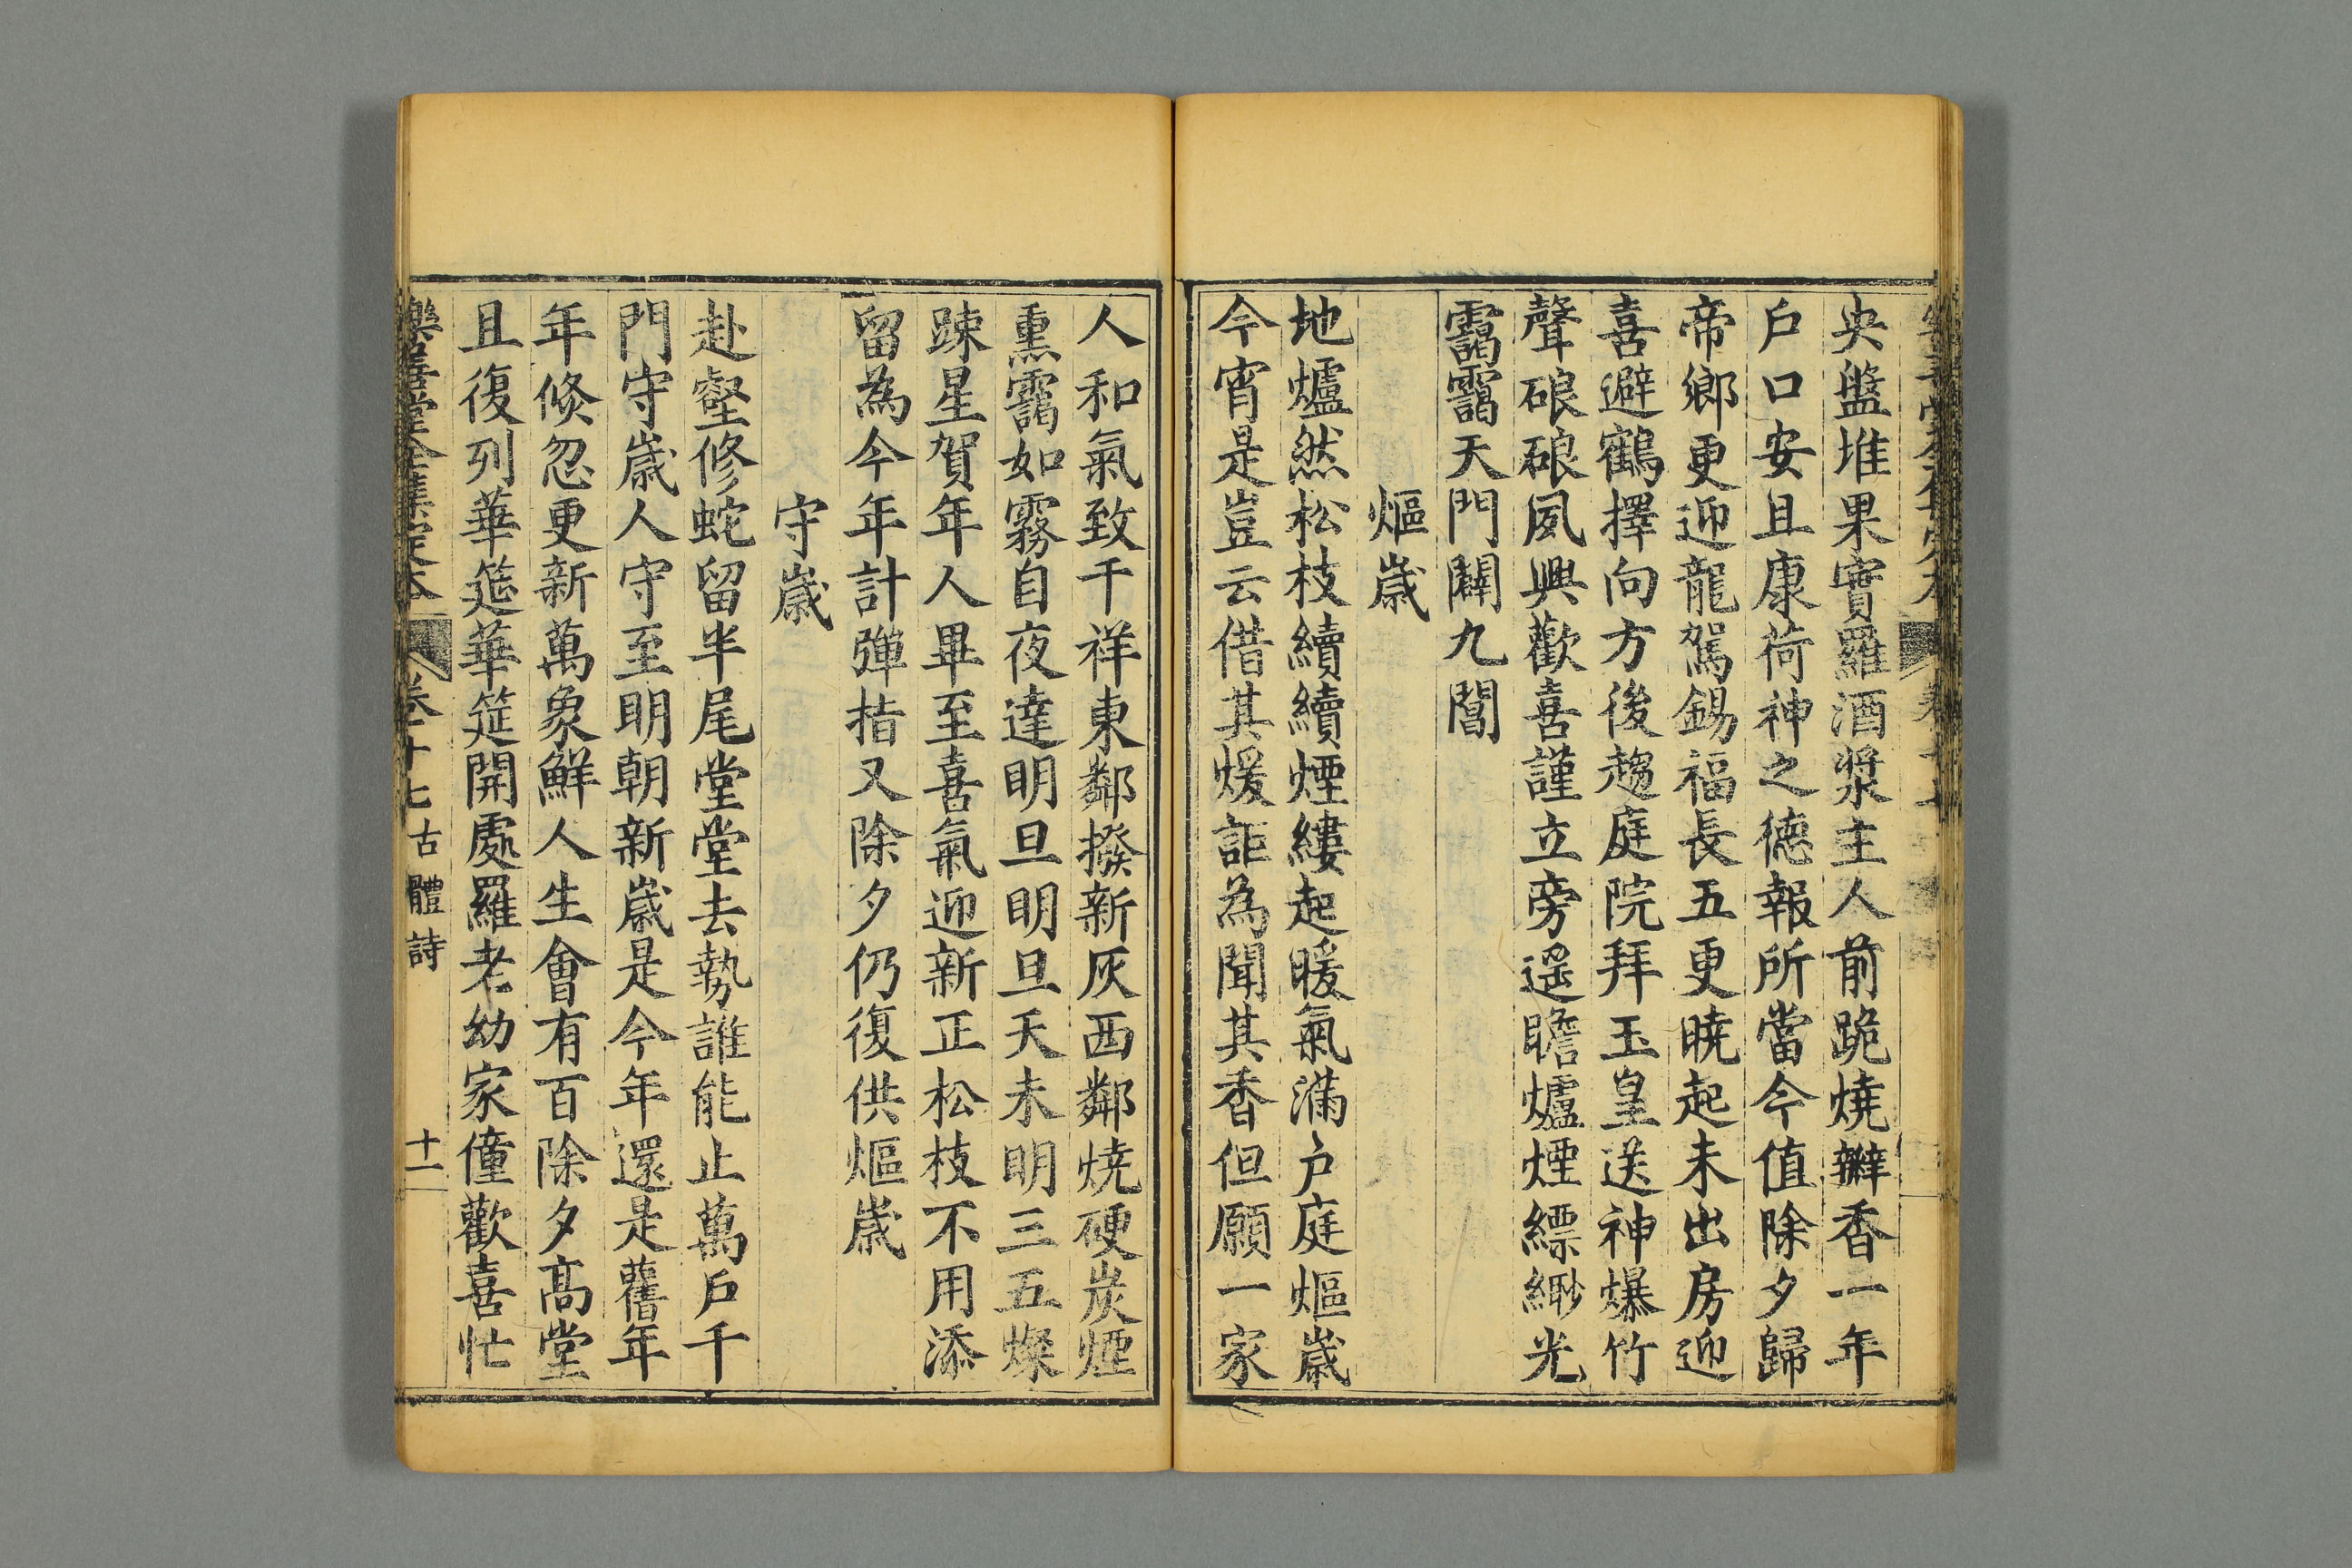 央盤堆果實羅酒漿主人前跪燒瓣香一年
戶口安且康荷神之德報所當今值除夕歸
帝鄉更迎龍駕錫福長五更曉起未出房迎
喜避鶴擇向方後趨庭院拜玉皇送神爆竹
聲硠硠夙興歡喜謹立旁遥瞻爐煙縹緲光
靄靄天門闢九閶
熰歲
地爐然松枝續續煙縷起暖氣滿戶庭熰歲
今宵是豈云借其煖詎為聞其香但願一家
人和氣致千祥東鄰撥新灰西鄰燒硬炭煙
熏靄如霧自夜達明旦明旦天未明三五燦
踈星賀年人畢至喜氣迎新正松枝不用添
留為今年計彈指又除夕仍復供熰歲
守歲
赴壑修蛇留半尾堂堂去勢誰能止萬戶千
門守歲人守至明朝新歲是今年還是舊年
年倐忽更新萬象鮮人生會有百除夕高堂
且復列華筵華筵開處羅老幼家僮歡喜忙
樂善堂全集定本 卷十七古體詩 十一